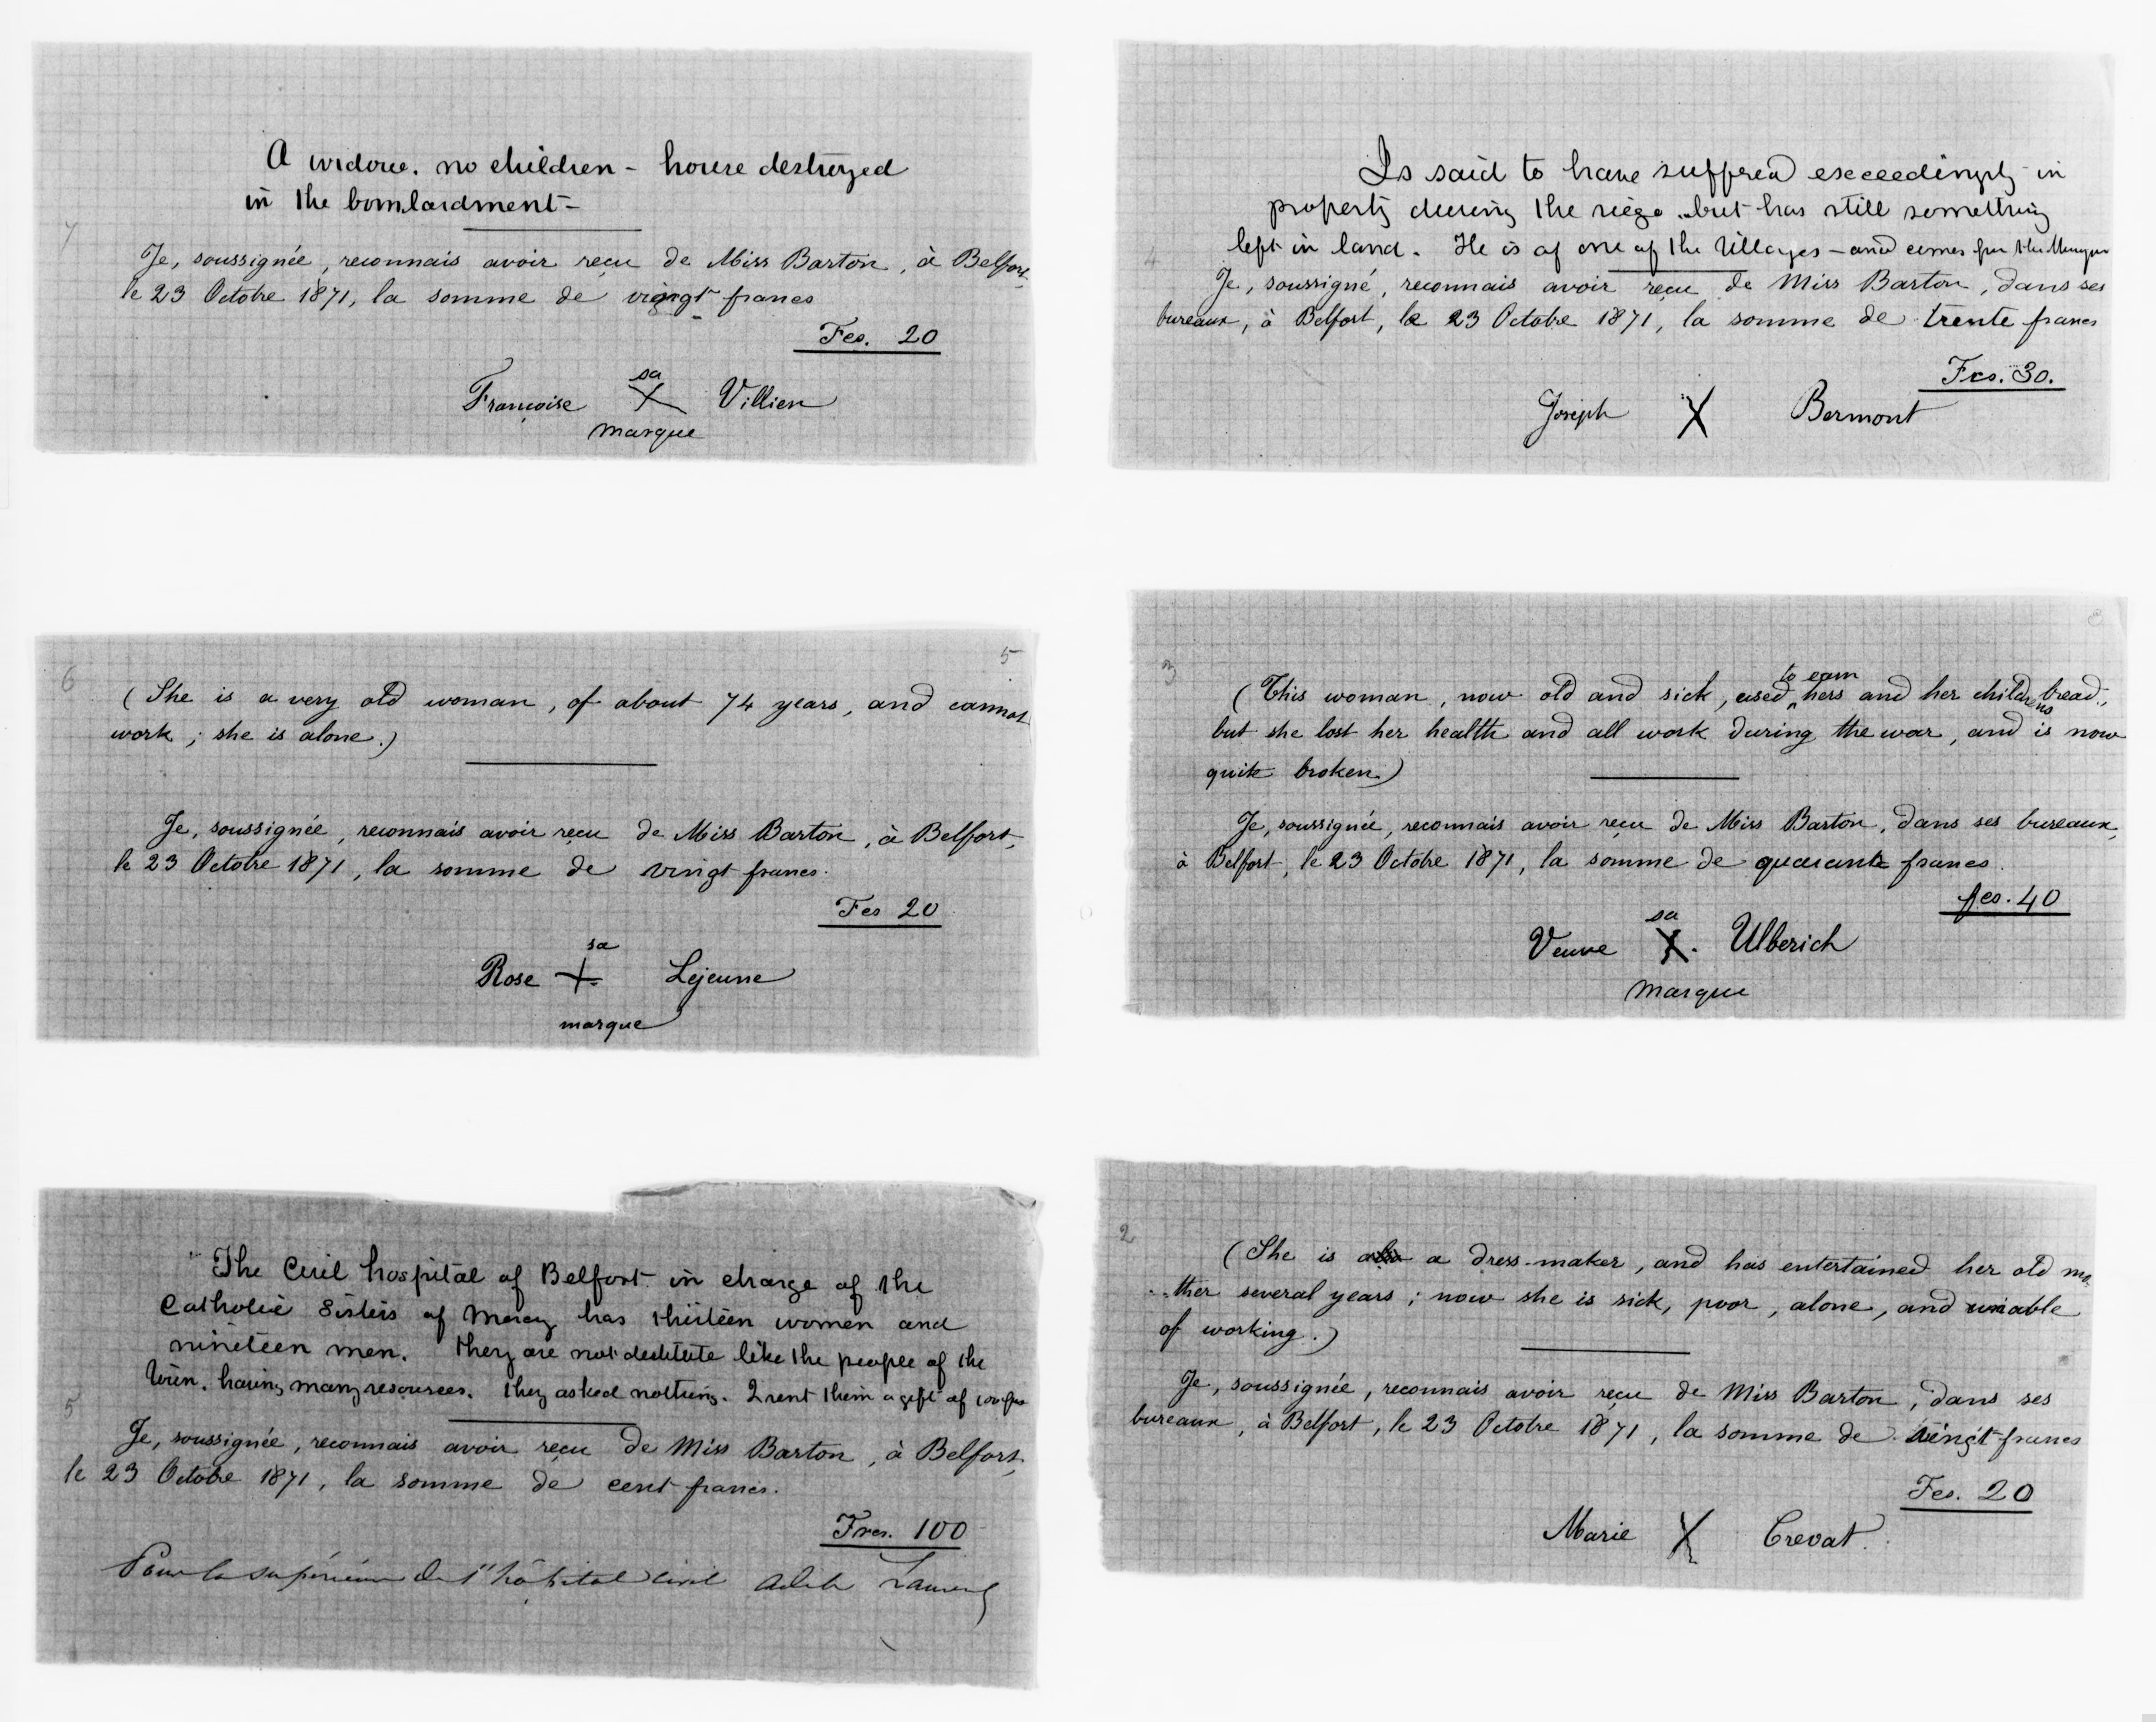 A widow. no children - house destroyed
in the bombardment -
7
Je, soussignée, reconnais avoir reçu de Miss Barton, à Belfort,
le 23 Octobre 1871, la somme de vingt francs
Fcs. 20
sa
Françoise X Villien
marque
Is said to have suffered exceedingly in
property during the siege - but has still something
left in land. He is of one of the villages - and comes fm the
4
Je, soussigné, reconnais avoir reçu de Miss Barton, dans ses
bureaux, à Belfort, le 23 Octobre 1871, la somme de trente francs
Fcs. 30.
Joseph X Bermont
6
5
(She is a very old woman, of about 74 years, and cannot
work; she is alone.)
Je, soussignée, reconnais avoir reçu de Miss Barton, à Belfort,
le 23 Octobre 1871, la somme de vingt francs.
Fcs 20
sa
Rose + Lejeune
marque
3
to earn
(This woman, now old and sick, used hers and her childrens bread,
but she lost her health and all work during the war, and is now
quite broken.)
Je, soussignée, reconnais avoir reçu de Miss Barton, dans ses bureaux,
à Belfort, le 23 Octobre 1871, la somme de quarante francs.
fcs. 40
sa
Veuve X. Ulberich
marque
The Civil hospital of Belfort in charge of the
Catholic Sisters of Mercy has thirteen women and
nineteen men. They are not destitute like the people of the
town. having many resources. They asked nothing. I sent them a gift of 100 fcs
5
Je, soussignée, reconnais avoir reçu de Miss Barton, à Belfort,
le 23 Octobre 1871, la somme de cent francs.
Frcs. 100
Pour la supérieure de l'hôpital civil Adele
2
(She is a dress-maker, and has entertained her old mo-
-ther several years; now she is sick, poor, alone, and unable
of working.)
Je, soussignée, reconnais avoir reçu de Miss Barton, dans ses
bureaux, à Belfort, le 23 Octobre 1871, la somme de vingt francs
Fcs. 20
Marie X Crevat.